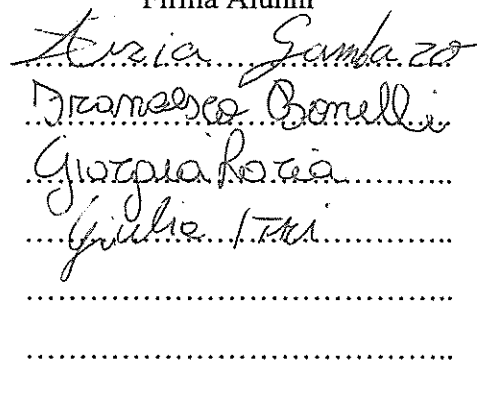 Firma Alunni
Gambazo
Francesco Bonelli
Giorgia Loria
Giulia Itri